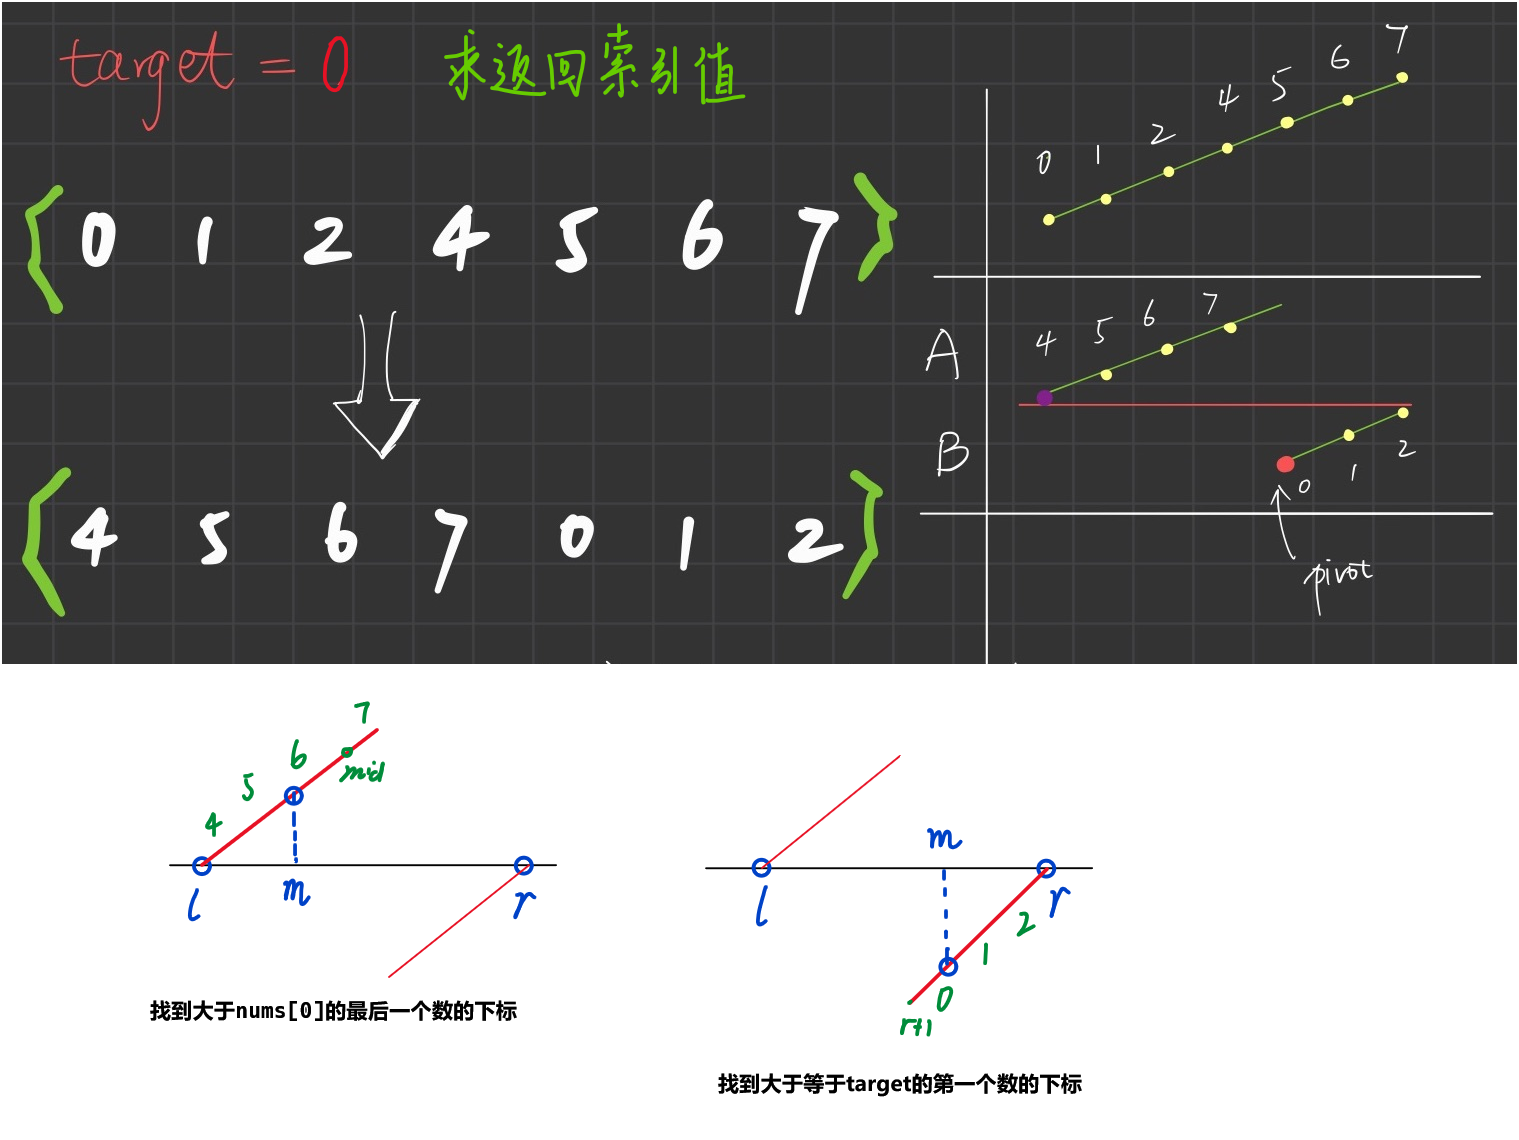 target = 0 求返回索引值
{ 0 1 2 4 5 6 7 }
{ 4 5 6 7 0 1 2 }
0 1 2 4 5 6 7
A
4 5 6 7
B
0 1 2
pivot
4 5 6 7
mid
l m r
找到大于nums[0]的最后一个数的下标
m
l r
0 1 2
r+1
找到大于等于target的第一个数的下标